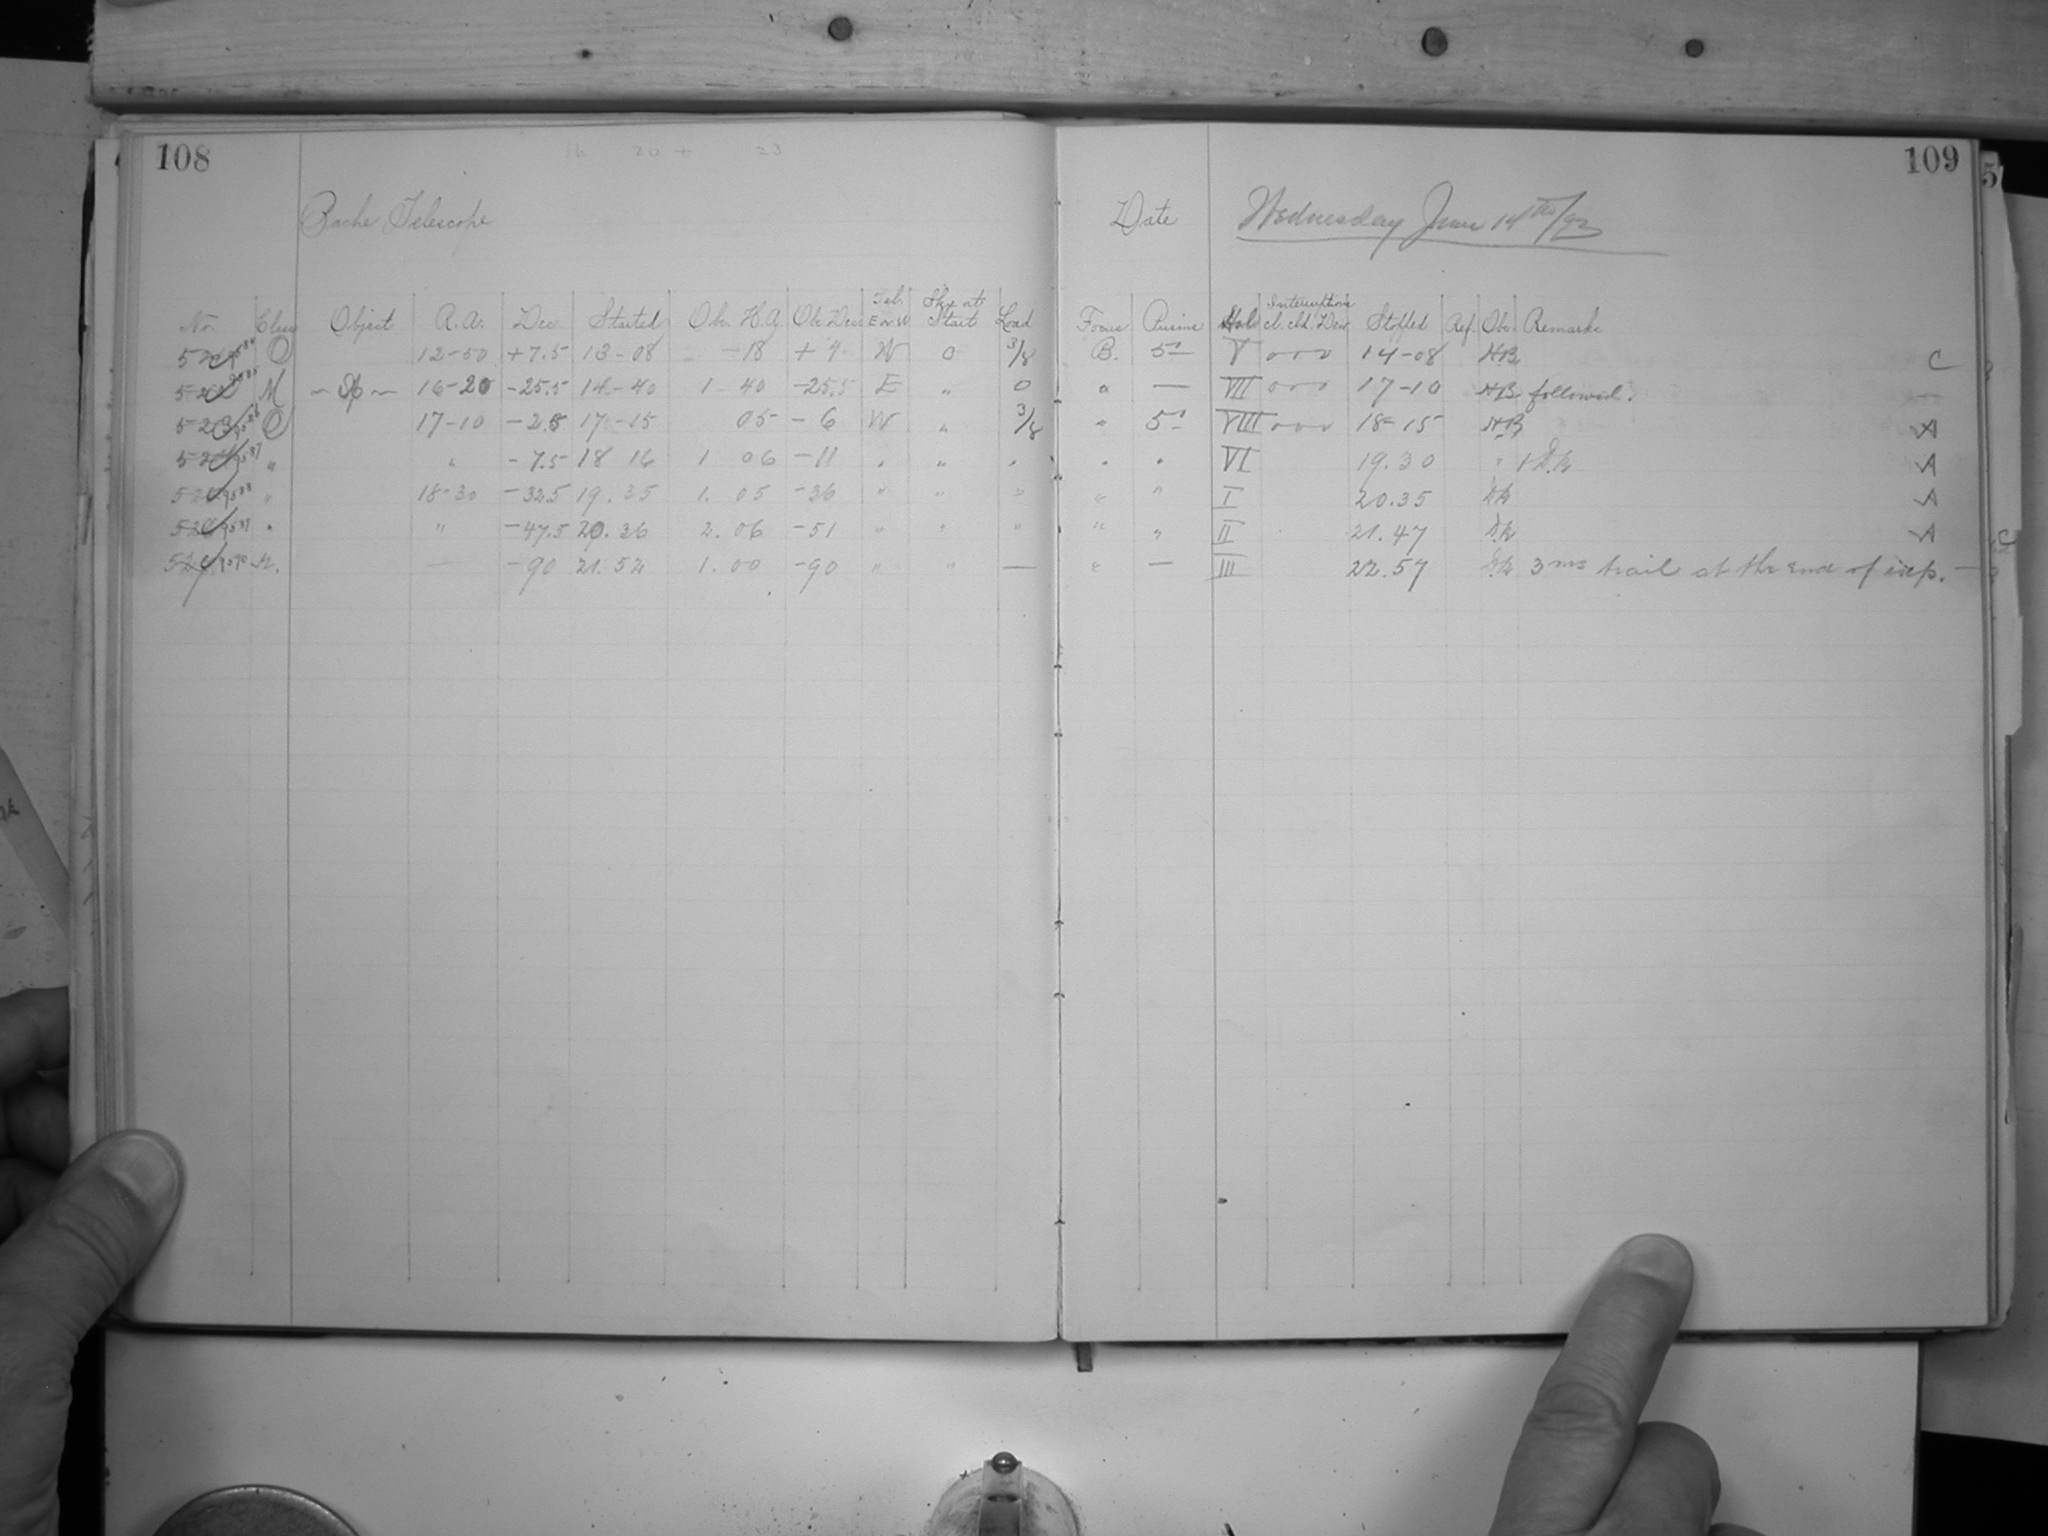 108
16 20 + 23
Bache Telescope
No. Class Object R.A. Dec. Started Obs. H.A. Obs. Dec. Tel. E or W Sky at Start Load
O 12-50 +7.5 13-08 -18 +4 W 0 3/8
M 16-20 -25.5 14-40 1 40 -25.5 E " 0
O 17-10 -2.5 17-15 05 -6 W " 3/8
" " -7.5 18 16 1 06 -11 " " "
" 18-30 -32.5 19.35 1.05 -36 " " "
" " -47.5 20.36 2.06 -51 " " "
— -90 21.52 1.00 -90 " " —
109
Date Wednesday June 14th/93
Focus Prisms Hol. Interruptions cl. cld. Dew Stopped Ref. Obs. Remarks
B. 5 V 0 0 0 14-08 HB C
" — VII 0 0 0 17-10 HB followed.
" 5 VIII 0 0 0 18-15 HB A
" " VI 19.30 " A
" " I 20.35 A
" " II 21.47 A
" — III 22.57 3ms trail at the end of exp. —